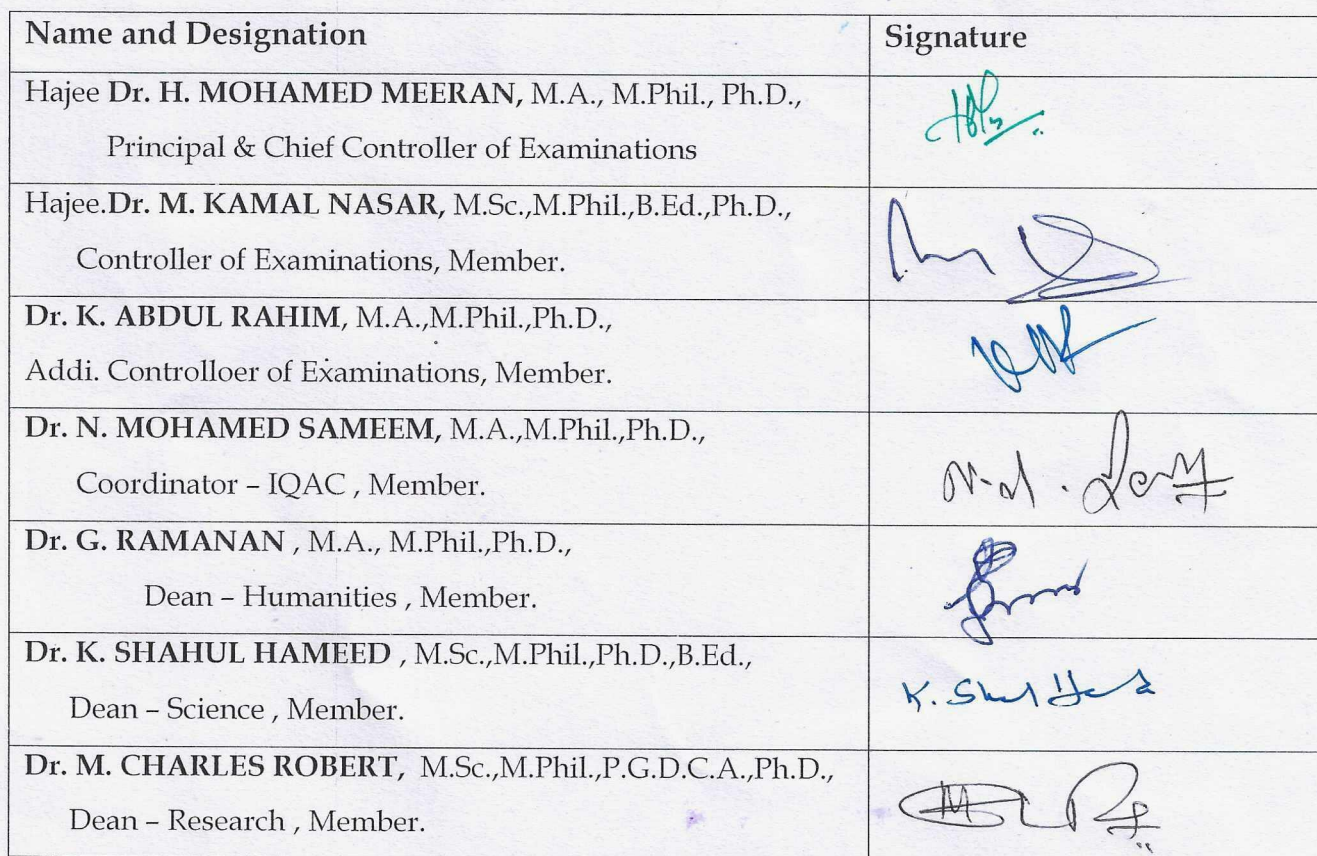 Name and Designation
Signature
Hajee Dr. H. MOHAMED MEERAN, M.A., M.Phil., Ph.D.,
Principal & Chief Controller of Examinations
Hajee.Dr. M. KAMAL NASAR, M.Sc.,M.Phil.,B.Ed.,Ph.D.,
Controller of Examinations, Member.
Dr. K. ABDUL RAHIM, M.A.,M.Phil.,Ph.D.,
Addi. Controlloer of Examinations, Member.
Dr. N. MOHAMED SAMEEM, M.A.,M.Phil.,Ph.D.,
Coordinator – IQAC , Member.
Dr. G. RAMANAN , M.A., M.Phil.,Ph.D.,
Dean – Humanities , Member.
Dr. K. SHAHUL HAMEED , M.Sc.,M.Phil.,Ph.D.,B.Ed.,
Dean – Science , Member.
Dr. M. CHARLES ROBERT, M.Sc.,M.Phil.,P.G.D.C.A.,Ph.D.,
Dean – Research , Member.